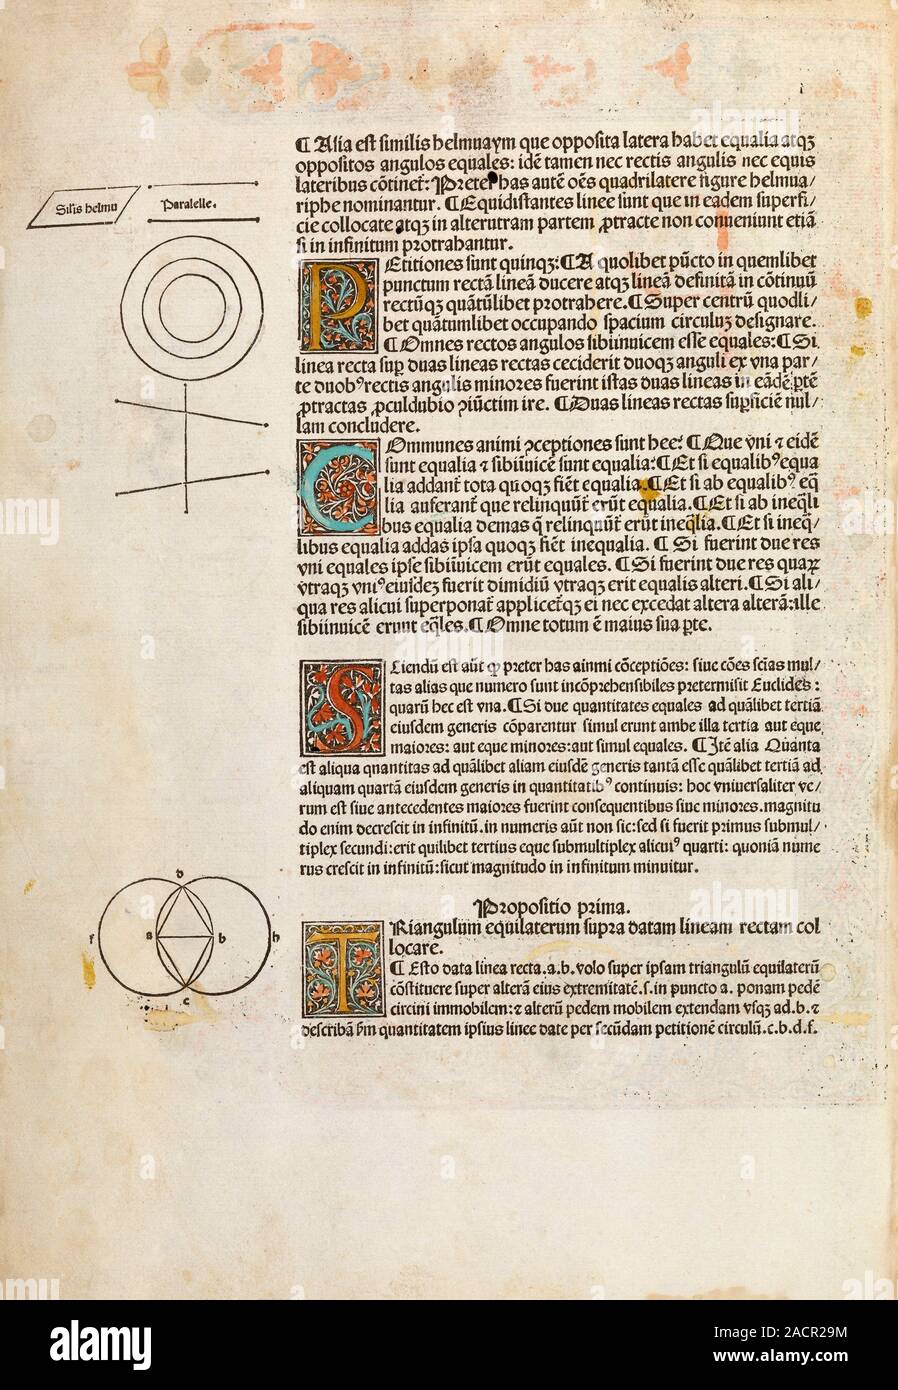 ¶ Alia est similis helmuaym que opposita latera habet equalia atqʒ
oppositos angulos equales: idē tamen nec rectis angulis nec equis
lateribus cōtinet᷑: Preter has autē oēs quadrilatere figure helmua/
riphe nominantur. ¶ Equidistantes linee sunt que in eadem superfi/
cie collocate atqʒ in alterutram partem ꝓtracte non conuenient etiā
si in infinitum protrahantur.
Sil'is helmu
Paralelle.
PEtitiones sunt quinqʒ: ¶ A quolibet pūcto in quemlibet
punctum rectā lineā ducere atqʒ lineā definitā in cōtinuū
rectūqʒ quātūlibet protrahere. ¶ Super centrū quodli/
bet quātumlibet occupando spacium circulūʒ designare.
¶ Omnes rectos angulos sibiinuicem esse equales: ¶ Si
linea recta sup̄ duas lineas rectas ceciderit duoqʒ anguli ex vna par/
te duobꝰ rectis angulis minores fuerint istas duas lineas in eādē ꝑtē
ꝓtractas ꝓculdubio ꝯiūctim ire. ¶ Duas lineas rectas sup̄ficiē nul/
lam concludere.
COmmunes animi ꝯceptiones sunt hee: ¶ Que vni ⁊ eidē
sunt equalia ⁊ sibiiuicē sunt equalia: ¶ Et si equalibꝰ equa
lia addant᷑ tota quoqʒ fiēt equalia. ¶ Et si ab equalibꝰ eq̄
lia auferant᷑ que relinquūt᷑ erūt equalia. ¶ Et si ab ineq̄li
bus equalia demas q̄ relinquūt᷑ erūt ineq̄lia. ¶ Et si ineq̄/
libus equalia addas ipsa quoqʒ fiēt inequalia. ¶ Si fuerint due res
vni equales ipse sibiinuicem erūt equales. ¶ Si fuerint due res quaꝝ
vtraqʒ vniꝰ eiusdēʒ fuerit dimidiū vtraqʒ erit equalis alteri. ¶ Si ali/
qua res alicui superponat᷑ applicet᷑qʒ ei nec excedat altera alterā: ille
sibiinuicē erunt eq̄les. ¶ Omne totum ē maius sua ꝑte.
SCiendū est aūt ꝙ preter has ainmi cōceptiōes: siue cōes scīas mul/
tas alias que numero sunt incōprehensibiles pretermisit Euclides:
quarū hec est vna. ¶ Si due quantitates equales ad quālibet tertiā
eiusdem generis cōparentur simul erunt ambe illa tertia aut eque
maiores: aut eque minores: aut simul equales. ¶ Itē alia Quanta
est aliqua quantitas ad quālibet aliam eiusdē generis tantā esse quālibet tertiā ad
aliquam quartā eiusdem generis in quantitatibꝰ continuis: hoc vniuersaliter ve/
rum est siue antecedentes maiores fuerint consequentibus siue minores. magnitu
do enim decrescit in infinitū. in numeris aūt non sic: sed si fuerit primus submul/
tiplex secundi: erit quilibet tertius eque submultiplex alicuiꝰ quarti: quoniā nume
rus crescit in infinitū: sicut magnitudo in infinitum minuitur.
Propositio prima.
TRiangulum equilaterum supra datam lineam rectam col
locare.
¶ Esto data linea recta .a.b. volo super ipsam triangulū equilaterū
cōstituere super alterā eius extremitatē .s. in puncto a. ponam pedē
circini immobilem: ⁊ alterū pedem mobilem extendam vsqʒ ad .b. ⁊
describā hm̄ quantitatem ipsius linee date per secūdam petitionē circulū .c.b.d.f.
d
f a b h
c
alamy
Image ID: 2ACR29M
www.alamy.com